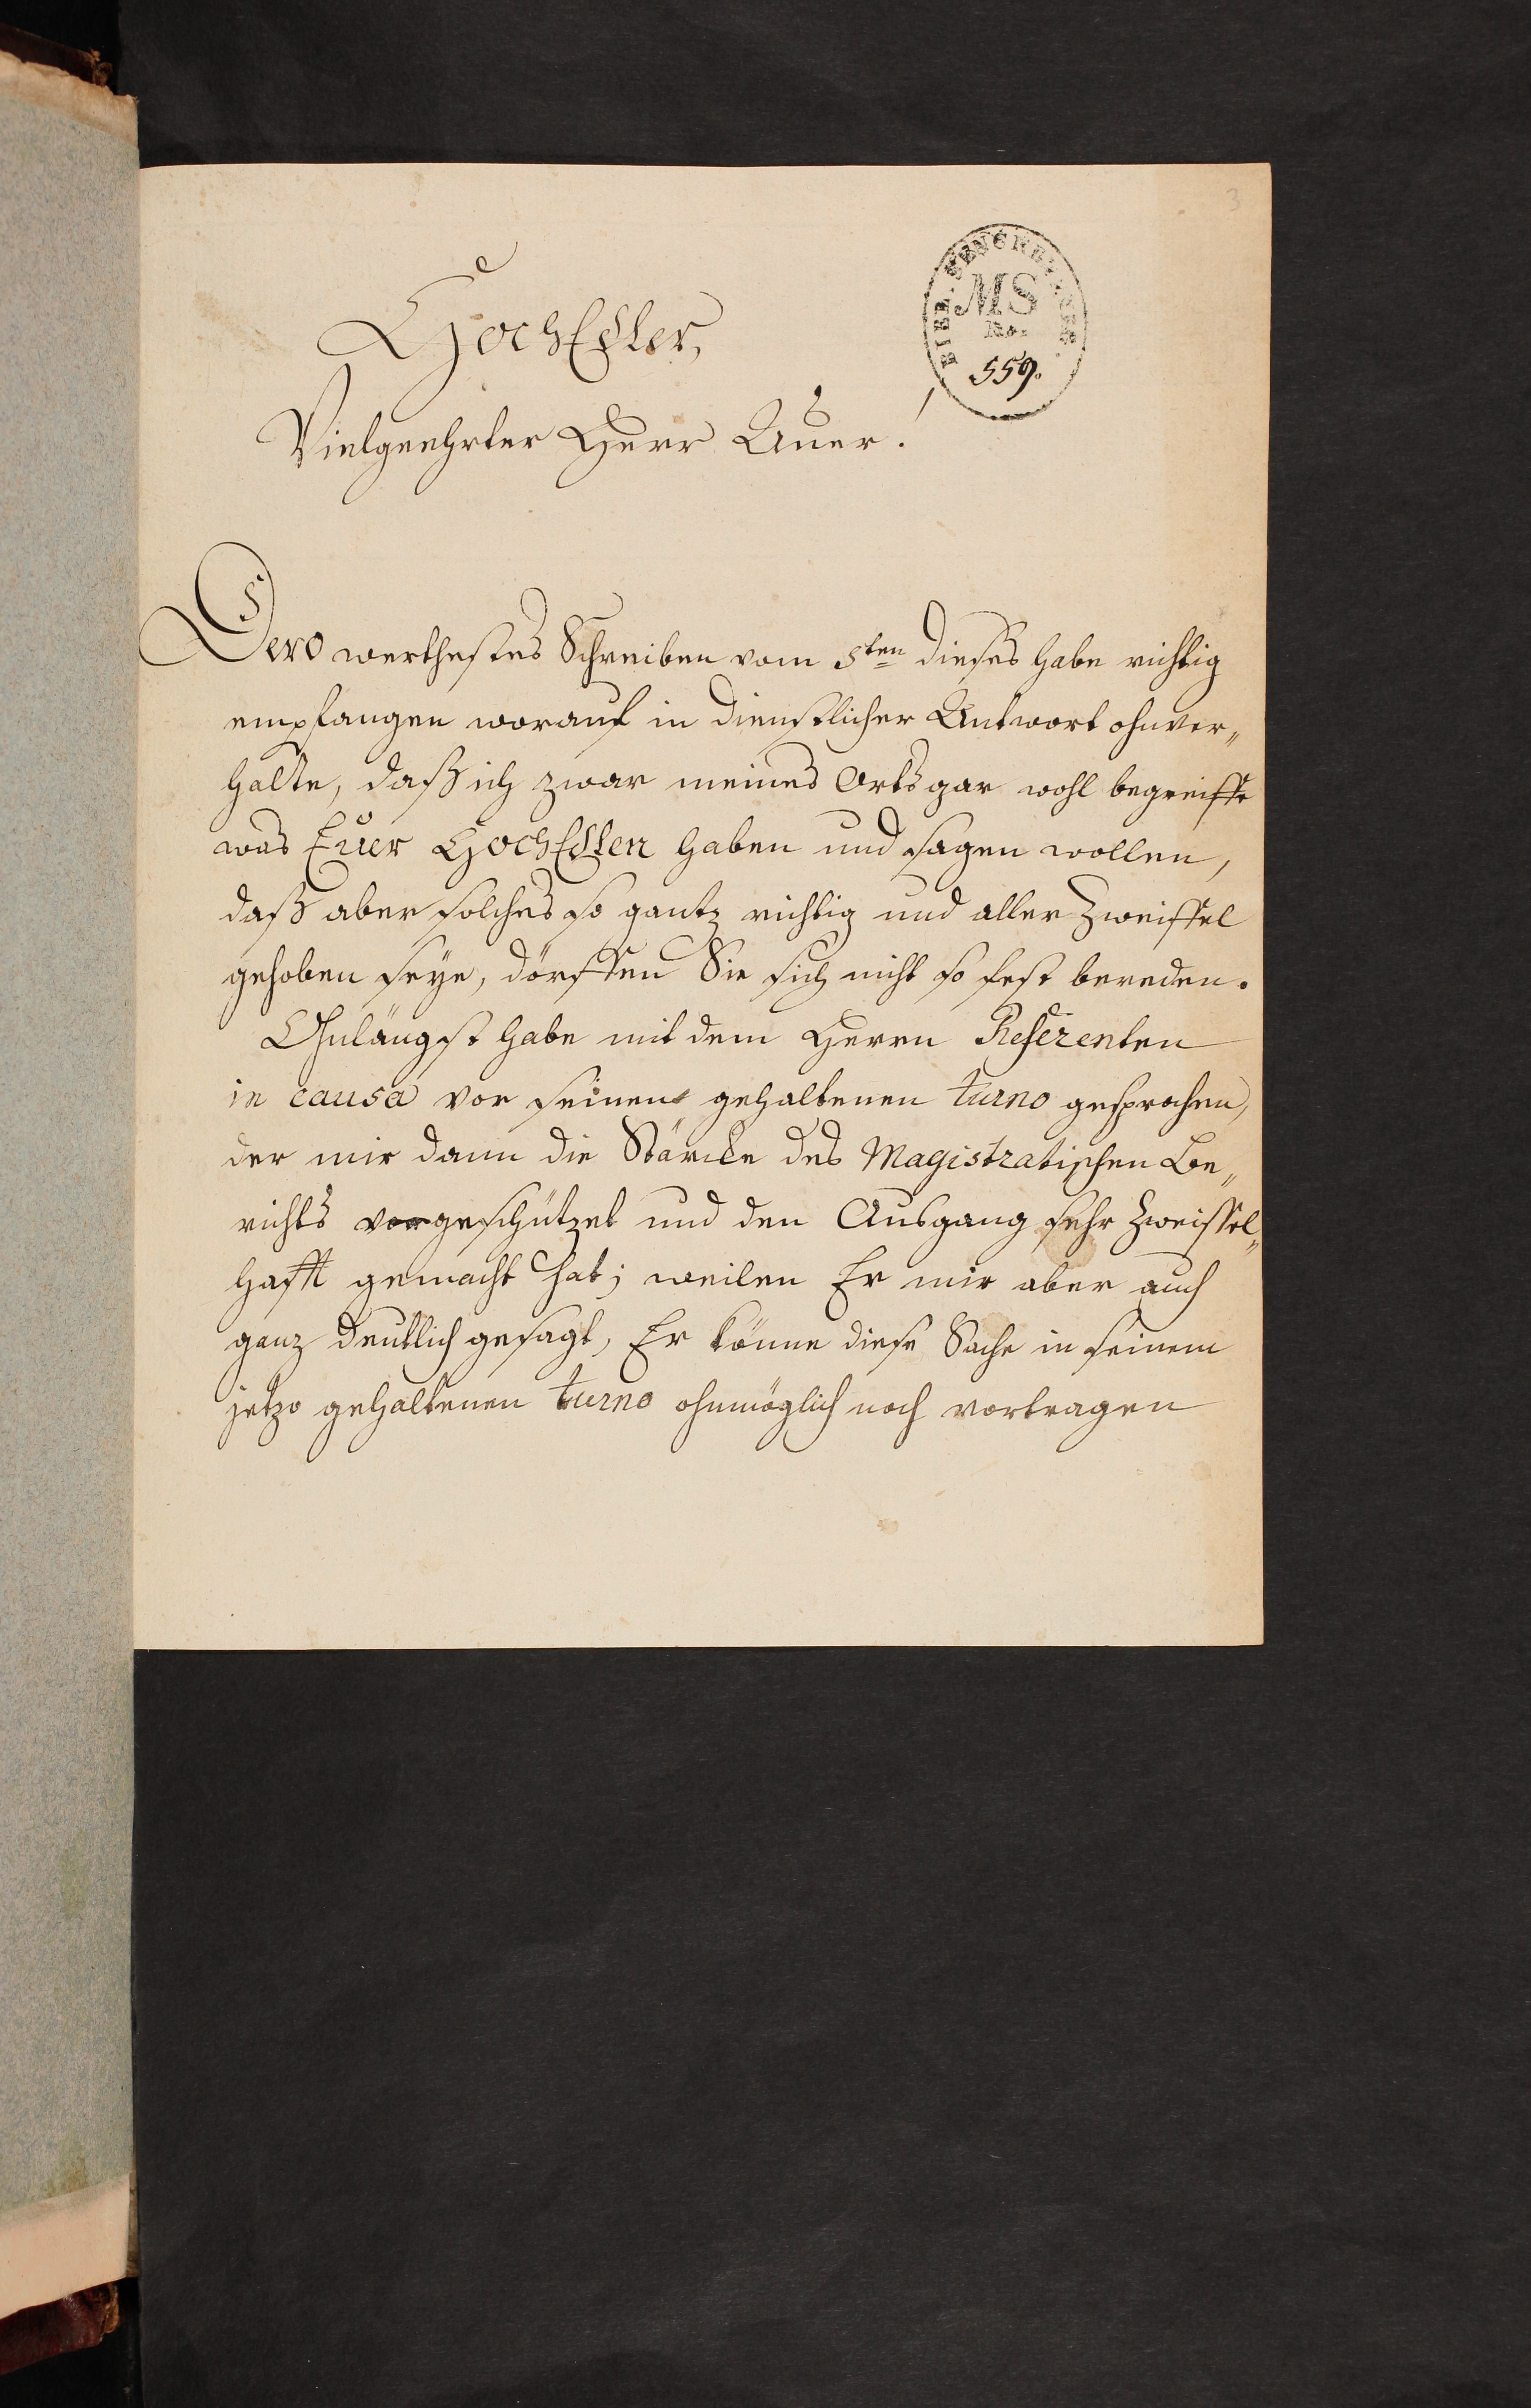 3
BIBL. SENCKENBERG.
MS
No.
559.
HochEdler,
Vielgeehrter Herr Auer!
Dero werthestes Schreiben vom 5ten dieses habe richtig
empfangen worauf in dienstlicher Antwort ohnver„
halte, daß ich zwar meines Orts gar wohl begreiffe
was Euer HochEdlen haben und sagen wollen,
daß aber solches so gantz richtig und aller Zweiffel
gehoben seye, dörfften Sie sich nicht so fest bereden.
Ohnlängst habe mit dem Herrn Referenten
in causa vor seinem gehaltenen turno gesprochen,
der mir dann die Stärcke des Magistratischen Be„
richts vorgeschützet und den Ausgang sehr Zweiffel„
hafft gemacht hat; weilen Er mir aber auch
ganz deutlich gesagt, Er könne diese Sache in seinem
jetzo gehaltenen turno ohnmöglich noch vortragen